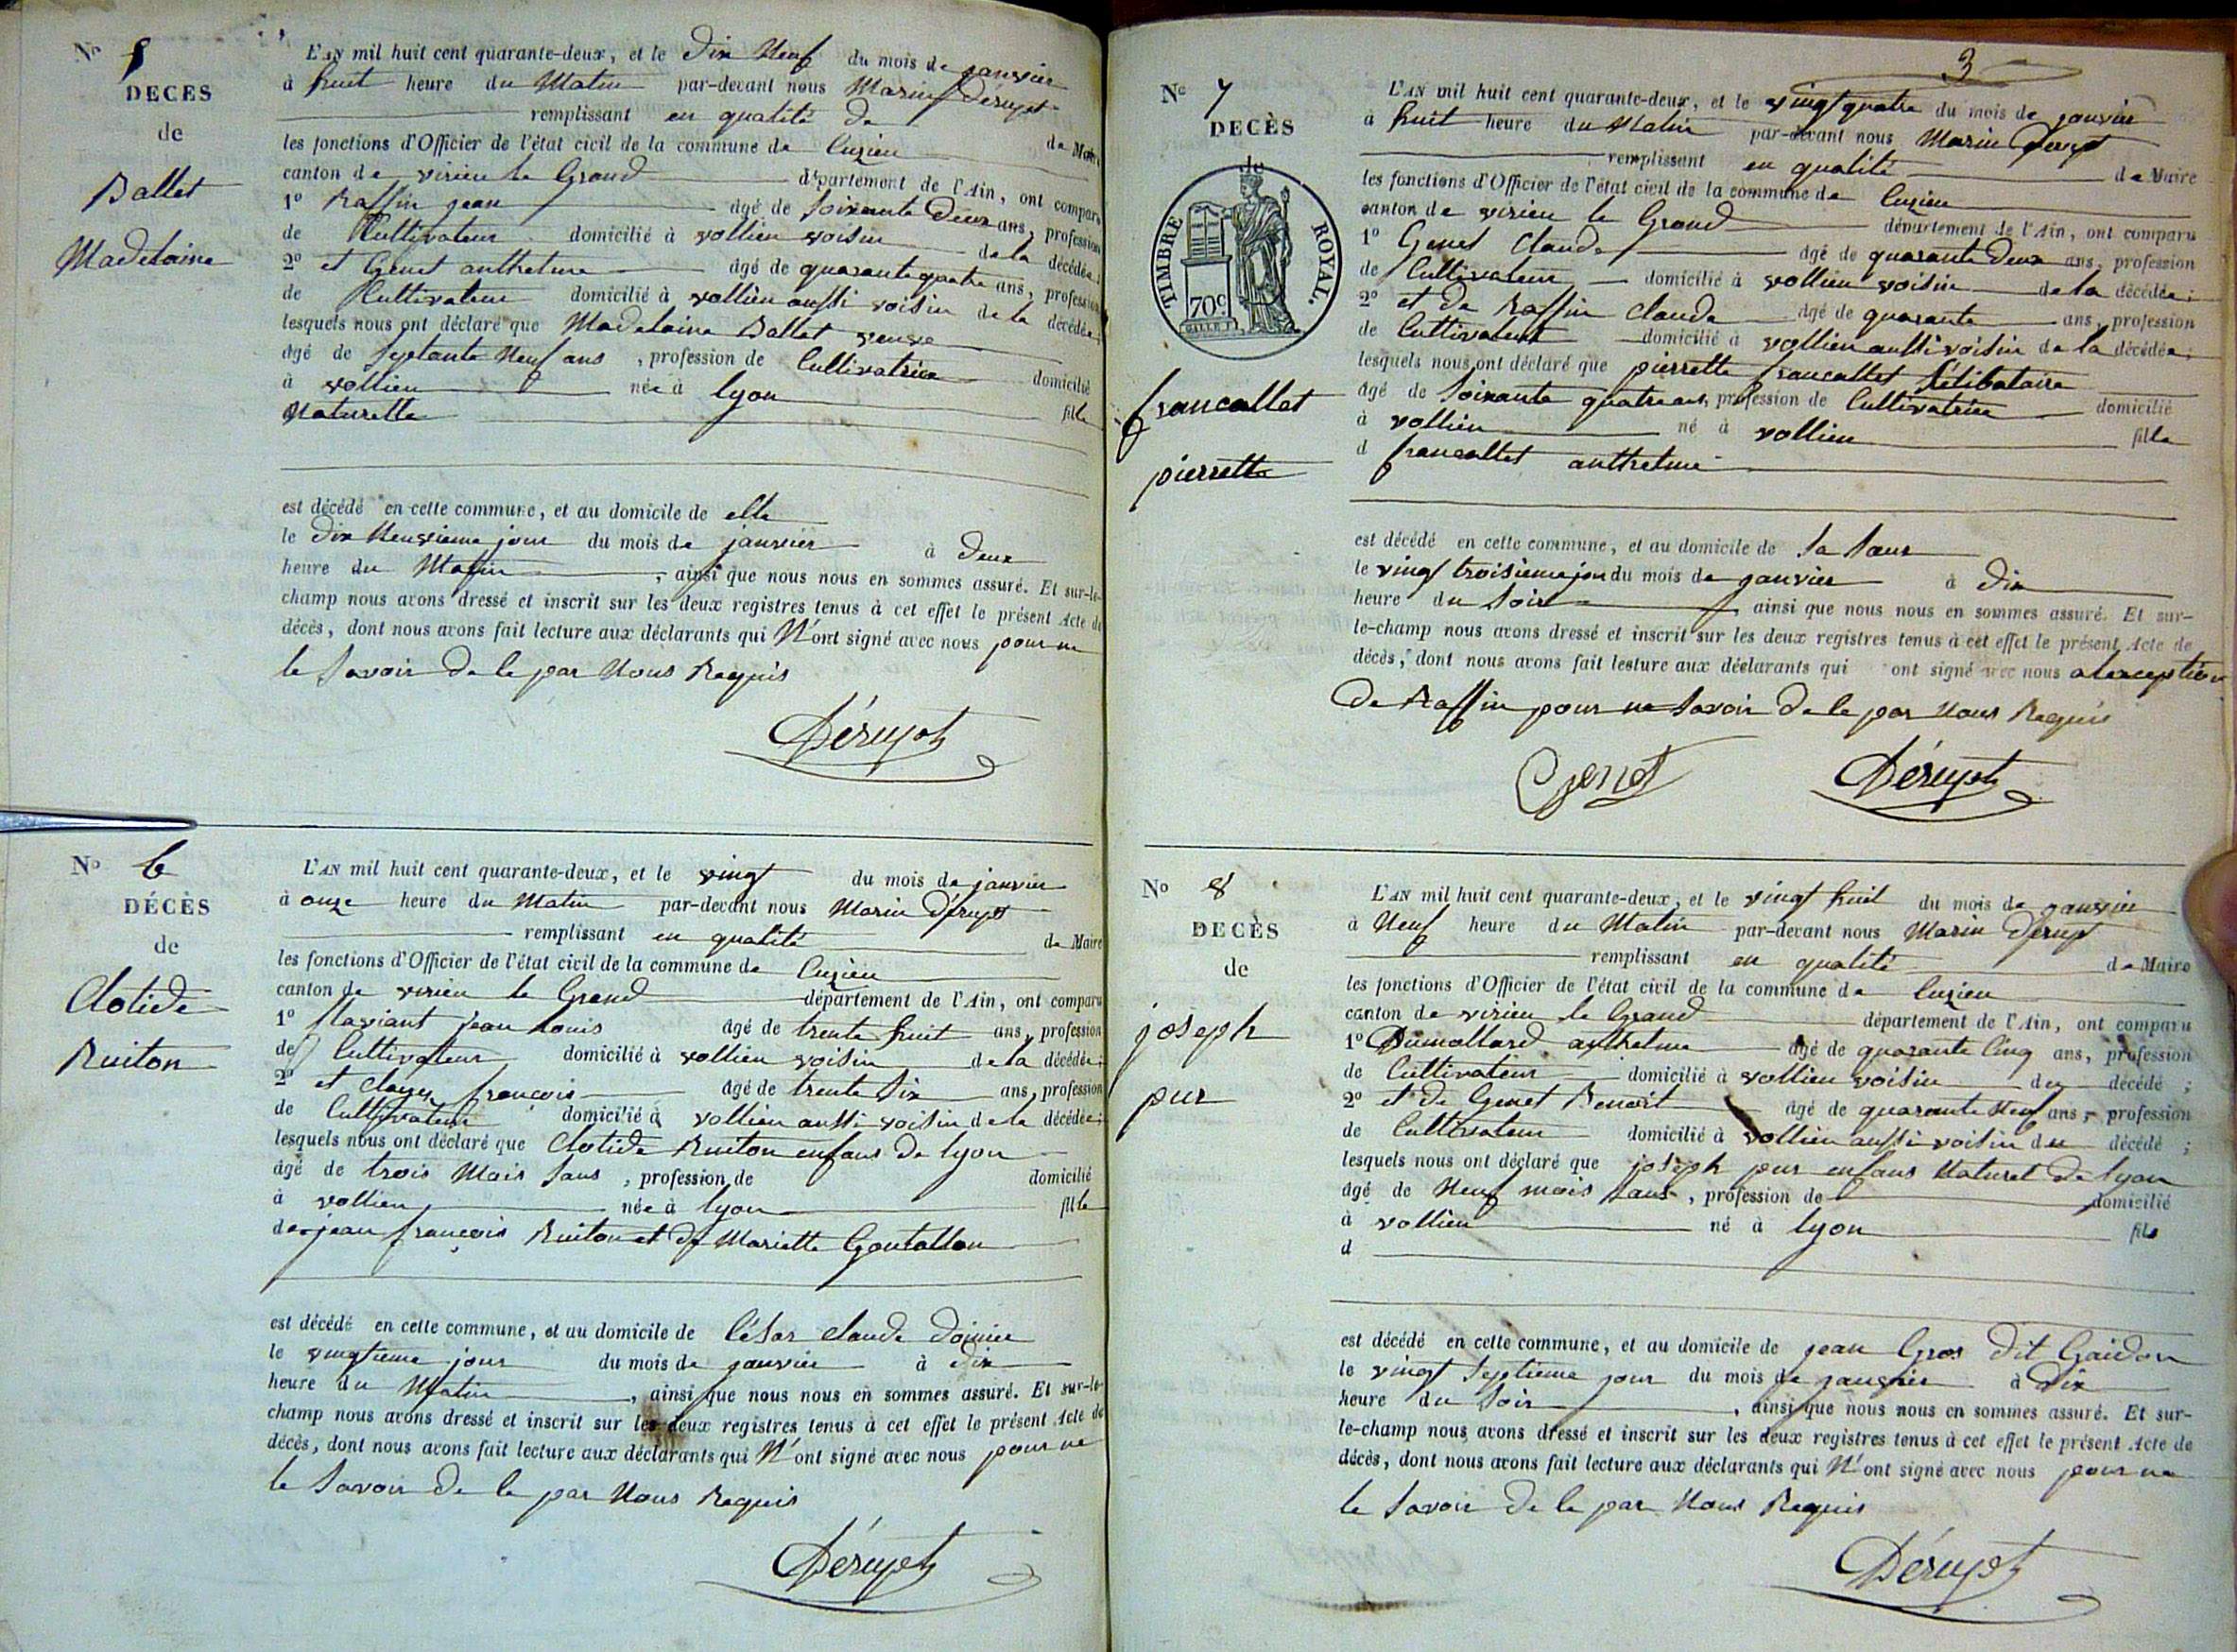 Nº 5
DECES
de
Ballet
Madelaine
L'AN mil huit cent quarante-deux, et le Dix Neuf du mois de janvier
à huit heure du Matin par-devant nous Marin Dérupt
remplissant en qualité de
les fonctions d'Officier de l'état civil de la commune de Cuzieu de Maire
canton de virieu le Grand département de l'Ain, ont comparu
1º Raffin jean âgé de Soixante Deux ans, profession
de Cultivateur domicilié à vollien voisin de la décédée;
2º et Genet anthelme âgé de quarante quatre ans, profession
de Cultivateur domicilié à vollien aussi voisin de la décédée;
lesquels nous ont déclaré que Madelaine Ballet veuve
âgé de Septante Neuf ans, profession de Cultivatrice domicilié
à vollien née à lyon fille
Naturelle
est décédé en cette commune, et au domicile de elle
le Dix Neuvieme jour du mois de janvier à Deux
heure du Matin, ainsi que nous nous en sommes assuré. Et sur-le-
champ nous avons dressé et inscrit sur les deux registres tenus à cet effet le présent Acte de
décès, dont nous avons fait lecture aux déclarants qui N'ont signé avec nous pour ne
le Savoir De le par Nous Requis
Dérupt
Nº 6
DÉCÈS
de
Clotide
Ruiton
L'AN mil huit cent quarante-deux, et le vingt du mois de janvier
à onze heure du Matin par-devant nous Marin Dérupt
remplissant en qualité de Maire
les fonctions d'Officier de l'état civil de la commune de Cuzieu
canton de virieu le Grand département de l'Ain, ont comparu
1º flaviant Jean Louis âgé de trente huit ans, profession
de Cultivateur domicilié à vollien voisin de la décédée;
2º et françois âgé de trente Six ans, profession
de Cultivateur domicilié à vollien aussi voisin de la décédée;
lesquels nous ont déclaré que Clotide Ruiton enfans De lyon
âgé de trois Mois Sans, profession de domicilié
à vollien née à lyon fille
de jean françois Ruiton et De Mariette
est décédé en cette commune, et au domicile de César claude
le vingtieme jour du mois de janvier à dix
heure du Matin, ainsi que nous nous en sommes assuré. Et sur-le-
champ nous avons dressé et inscrit sur les deux registres tenus à cet effet le présent Acte de
décès, dont nous avons fait lecture aux déclarants qui N'ont signé avec nous pour ne
le Savoir De le par Nous Requis
Dérupt
3
Nº 7
DECÈS
de
TIMBRE ROYAL.
70c
francallet
pierrette
L'AN mil huit cent quarante-deux, et le vingt quatre du mois de janvier
à huit heure du Matin par-devant nous Marin Dérupt
remplissant en qualité de Maire
les fonctions d'Officier de l'état civil de la commune de Cuzieu
canton de virieu le Grand département de l'Ain, ont comparu
1º Genet Claude âgé de quarante Deux ans, profession
de Cultivateur domicilié à vollien voisin de la décédée;
2º et De Raffin claude âgé de quarante ans, profession
de Cultivateur domicilié à vollien aussi voisin de la décédée;
lesquels nous ont déclaré que pierrette francallet Célibataire
âgé de Soixante quatre ans, profession de Cultivatrice domicilié
à vollien né à vollien fille
d francallet anthelme
est décédé en cette commune, et au domicile de Sa Sœur
le vingt troisieme jou du mois de janvier à Dix
heure du Soir ainsi que nous nous en sommes assuré. Et sur-
le-champ nous avons dressé et inscrit sur les deux registres tenus à cet effet le présent Acte de
décès, dont nous avons fait lecture aux déclarants qui ont signé avec nous alexception
De Raffin pour ne Savoir De le par Nous Requis
Genet Dérupt
Nº 8
DECÈS
de
joseph
pur
L'AN mil huit cent quarante-deux, et le vingt huit du mois de janvier
à Neuf heure du Matin par-devant nous Marin Dérupt
remplissant en qualité de Maire
les fonctions d'Officier de l'état civil de la commune de Cuzieu
canton de virieu le Grand département de l'Ain, ont comparu
1º Dumollard anthelme âgé de quarante Cinq ans, profession
de Cultivateur domicilié à vollien voisin du décédé;
2º et De Genet Benoit âgé de quarante Neuf ans, profession
de Cultivateur domicilié à vollien aussi voisin du décédé;
lesquels nous ont déclaré que joseph pur enfans Naturel De lyon
âgé de Neuf mois Sans, profession de domicilié
à vollien né à lyon fils
d
est décédé en cette commune, et au domicile de jean Gros Dit Gaidon
le vingt Septieme jour du mois de janvier à Dix
heure du Soir, ainsi que nous nous en sommes assuré. Et sur-
le-champ nous avons dressé et inscrit sur les deux registres tenus à cet effet le présent Acte de
décès, dont nous avons fait lecture aux déclarants qui N'ont signé avec nous pour ne
le Savoir De le par Nous Requis
Dérupt